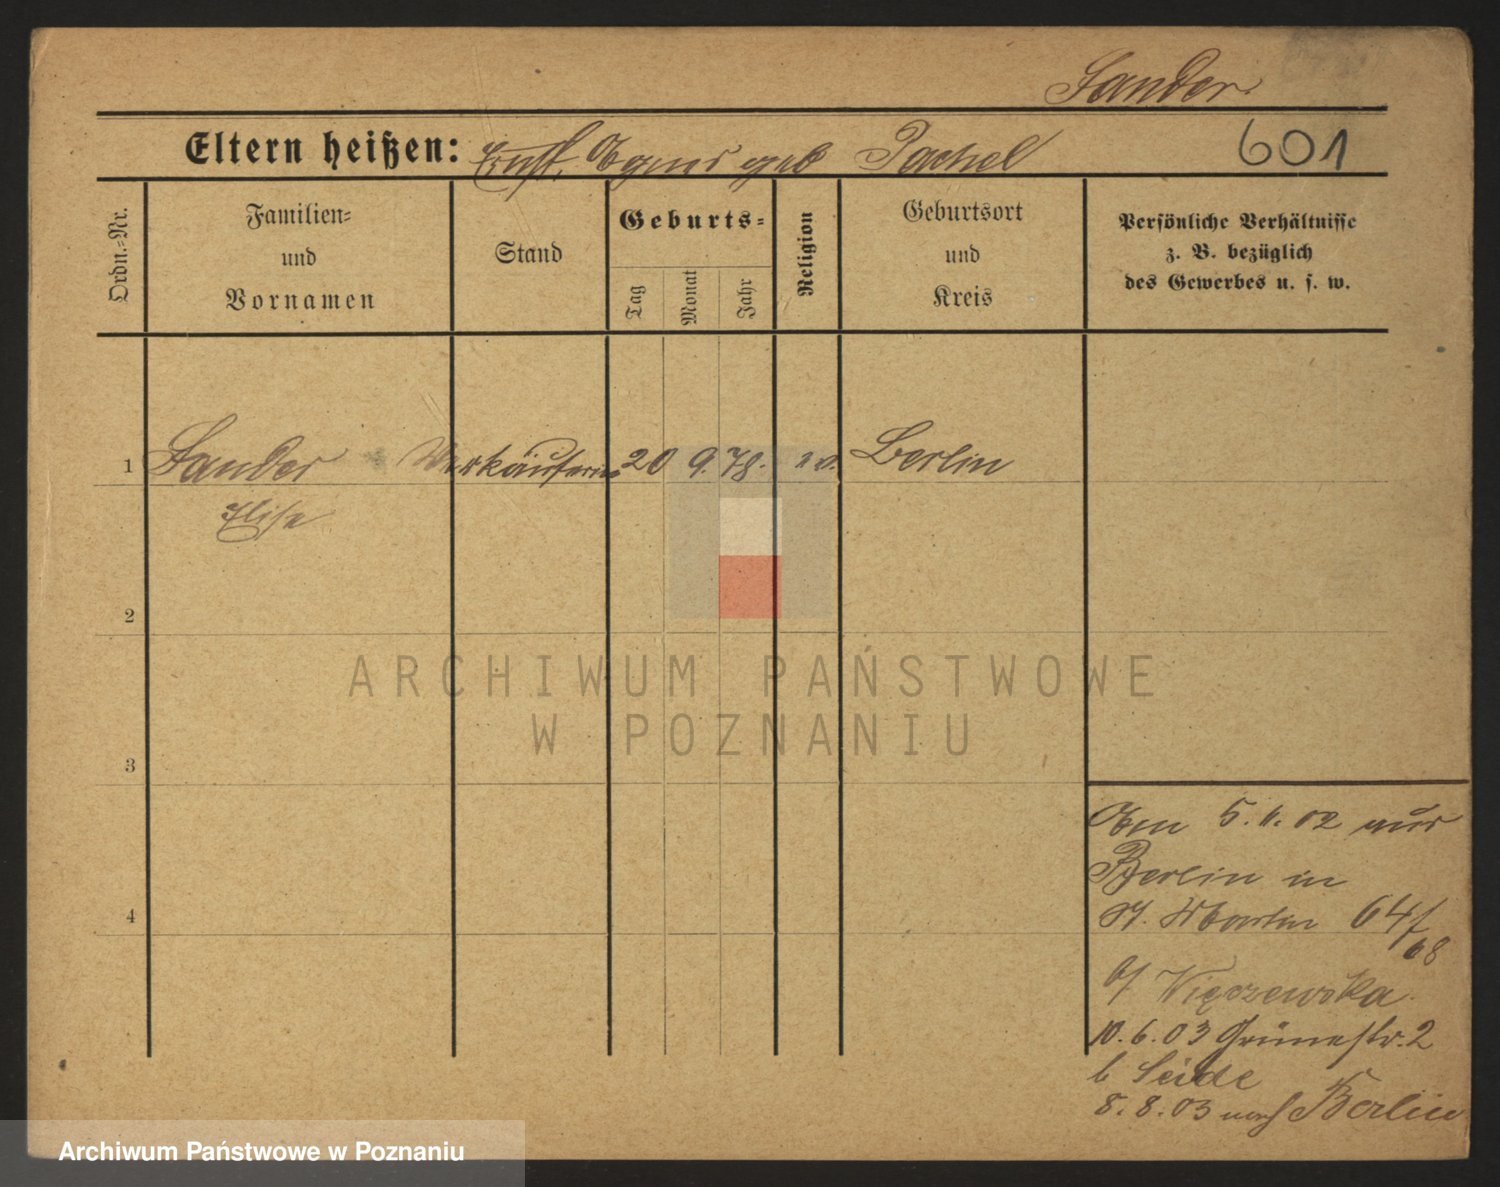 Sander.
Eltern heißen: Ernst, Agnes geb Pachel
601
Ordn.=Nr.
Familien=
und
Vornamen
Stand
Geburts=
Tag
Monat
Jahr
Religion
Geburtsort
und
Kreis
Persönliche Verhältnisse
z. B. bezüglich
des Gewerbes u. s. w.
1 Sander Verkäuferin 20 9. 78. ev. Berlin
Elise
2
3
4
Am 5. 11. 02 aus
Berlin in
St. Martin 64/
68
b/ Więczewska.
10. 6. 03 Grünestr. 2
b Seide
8. 8. 03 nach Berlin
ARCHIWUM PAŃSTWOWE
W POZNANIU
Archiwum Państwowe w Poznaniu